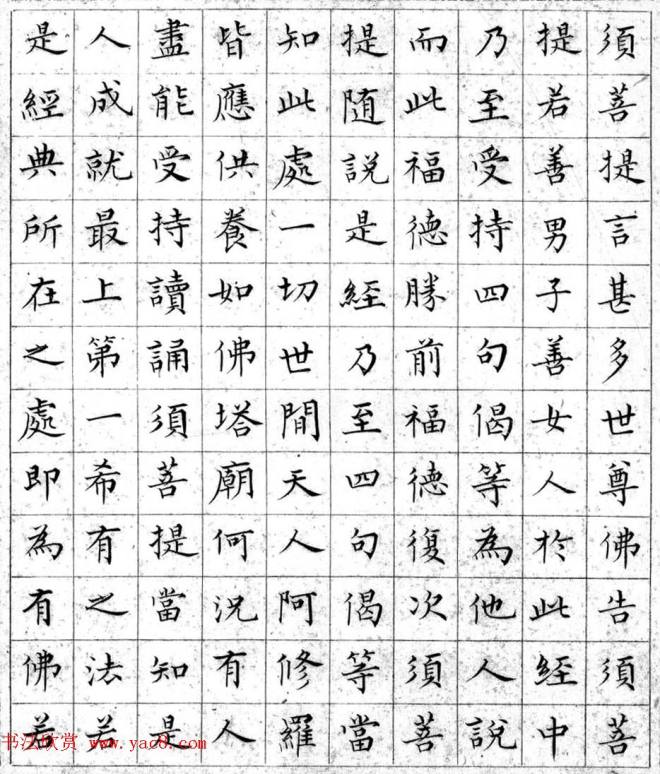 須菩提言甚多世尊佛告須菩
提若善男子善女人於此經中
乃至受持四句偈等為他人說
而此福德勝前福德復次須菩
提隨說是經乃至四句偈等當
知此處一切世間天人阿修羅
皆應供養如佛塔廟何況有人
盡能受持讀誦須菩提當知是
人成就最上第一希有之法若
是經典所在之處即為有佛若
书法欣赏 www.yac8.com